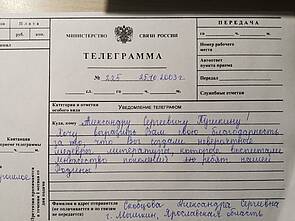 ПЕРЕДАЧА
МИНИСТЕРСТВО СВЯЗИ РОССИИ
ТЕЛЕГРАММА
го ч. м.
Номер рабочего места
Автоответ пункта приема
Передал
Служебные отметки
№ 225 25.10.2003 г.
Категория и отметки особого вида
УВЕДОМЛЕНИЕ ТЕЛЕГРАФОМ
Куда, кому Александру Сергеевичу Пушкину!
Хочу выразить Вам свою благодарность
за то, что Вы создали невероятные
шедевры литературы, которые воспитали
множество поколений ребят нашей
Родины
Квитанция
Фамилия и адрес отправителя (не
оплачивается и по связи не передается)
Скобцова Александра Сергеевна
г. Мышкин, Ярославская область